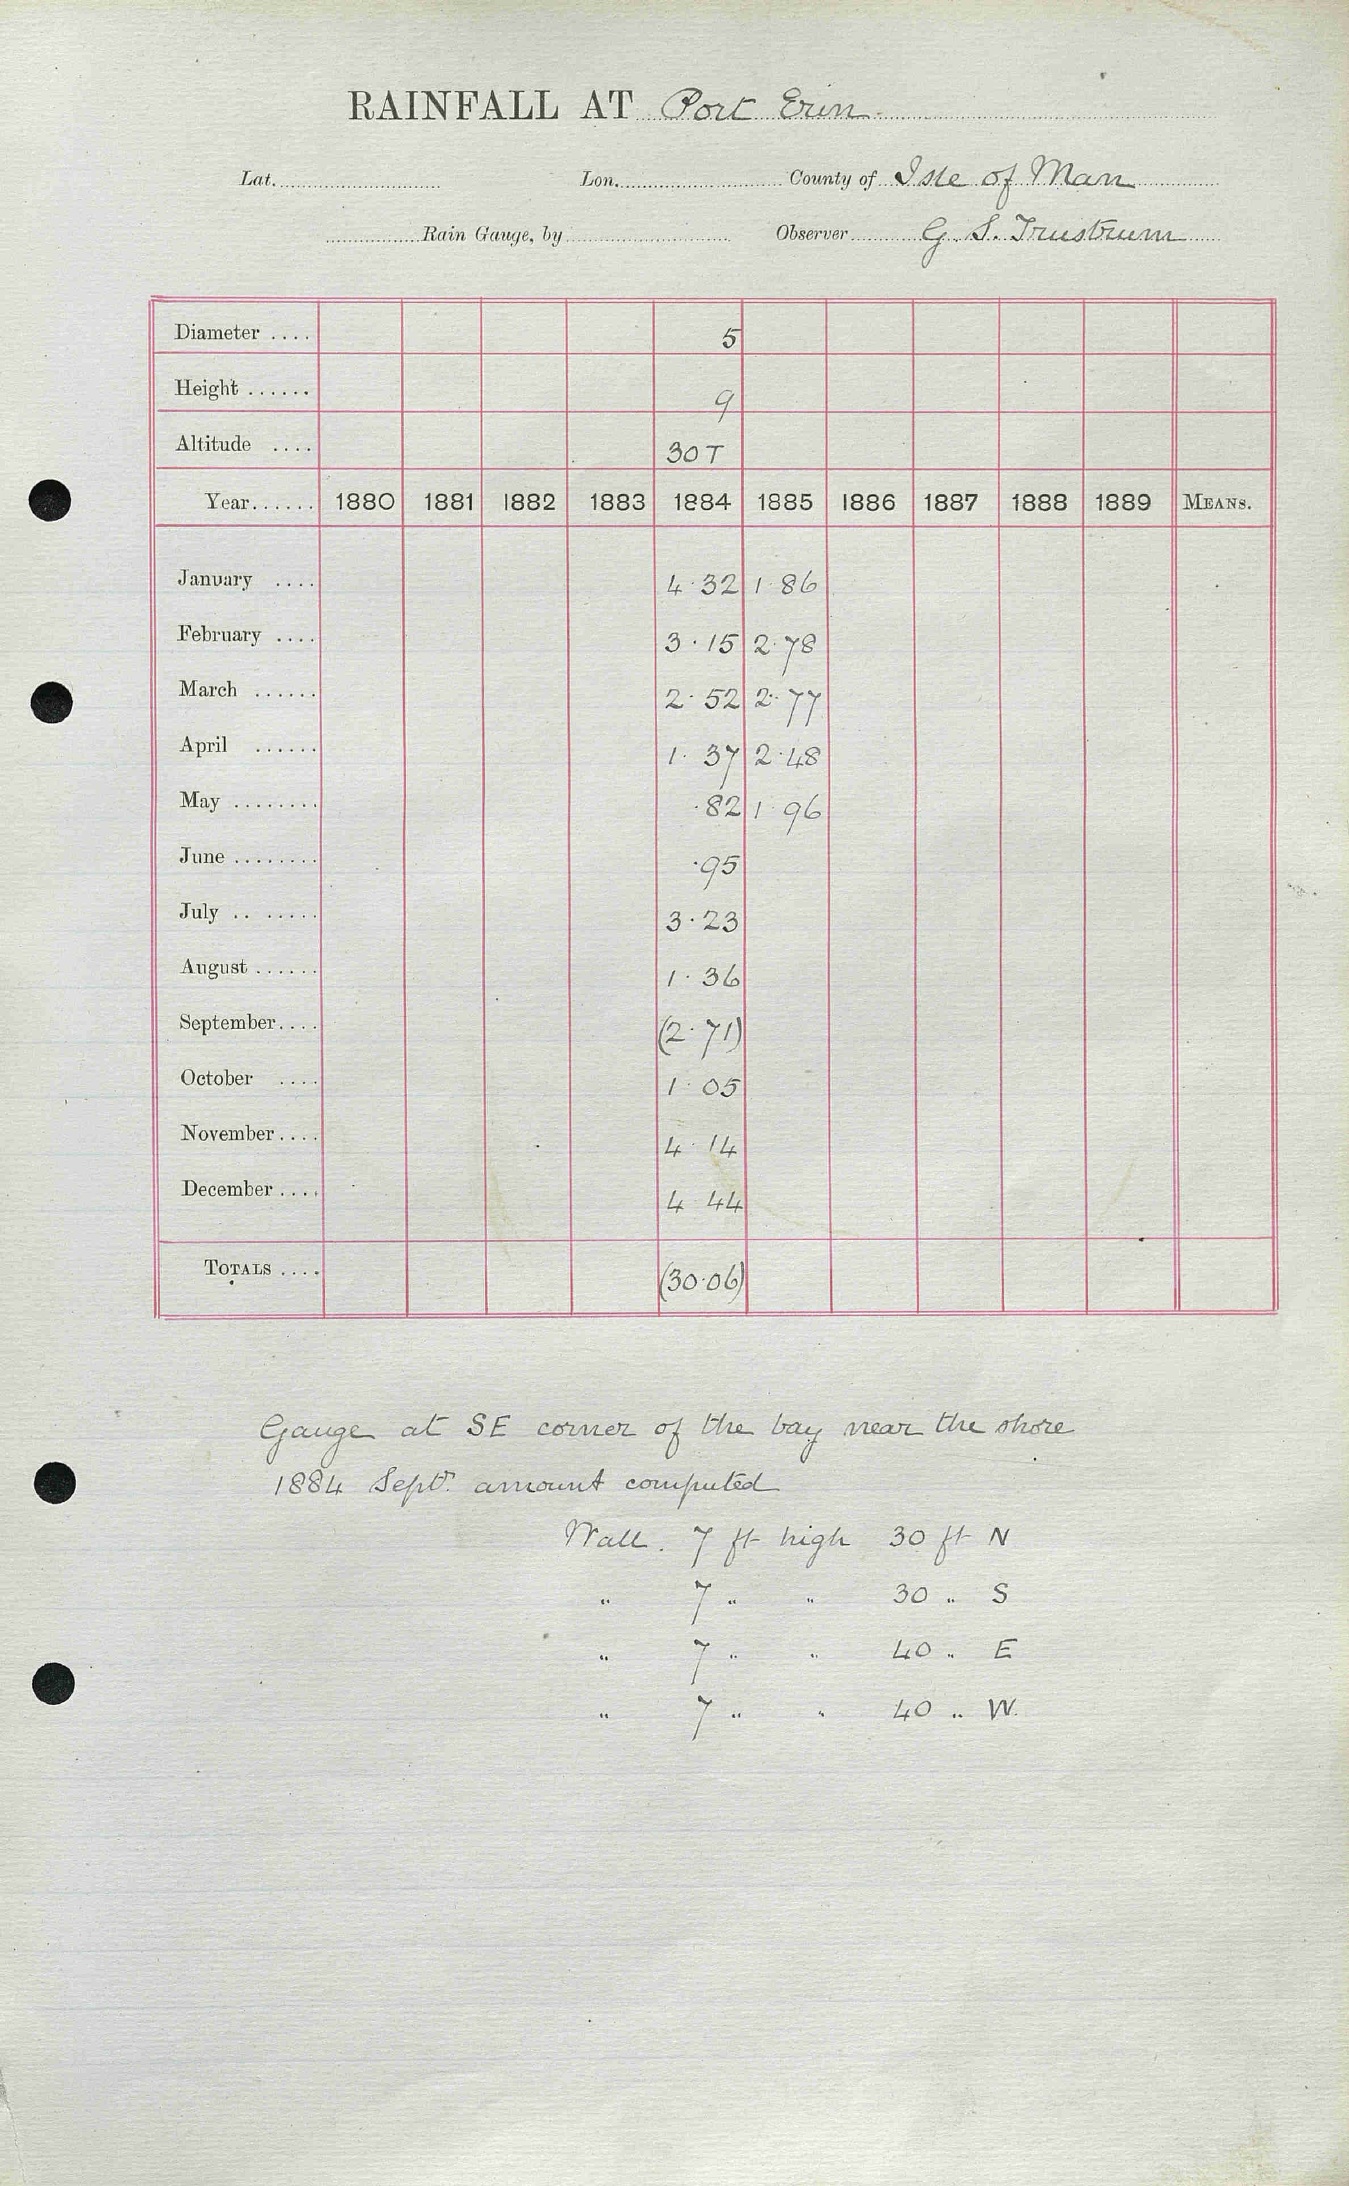 RAINFALL AT Port Erin
Lat. Lon. County of Isle of Man
Rain Gauge, by Observer G. S. Trustrum
Diameter .... 5
Height ...... 9
Altitude .... 30 T
Year...... 1880 1881 1882 1883 1884 1885 1886 1887 1888 1889 MEANS.
January .... 4.32 1.86
February .... 3.15 2.78
March ...... 2.52 2.77
April ...... 1.37 2.48
May ........ .82 1.96
June ........ .95
July .. ..... 3.23
August ...... 1.36
September.... (2.71)
October .... 1.05
November.... 4.14
December.... 4 44
TOTALS .... (30.06)
Gauge at SE corner of the bay near the shore
1884 Septr. amount computed
Wall. 7 ft high 30 ft N
" 7 " " 30 " S
" 7 " " 40 " E
" 7 " " 40 " W.